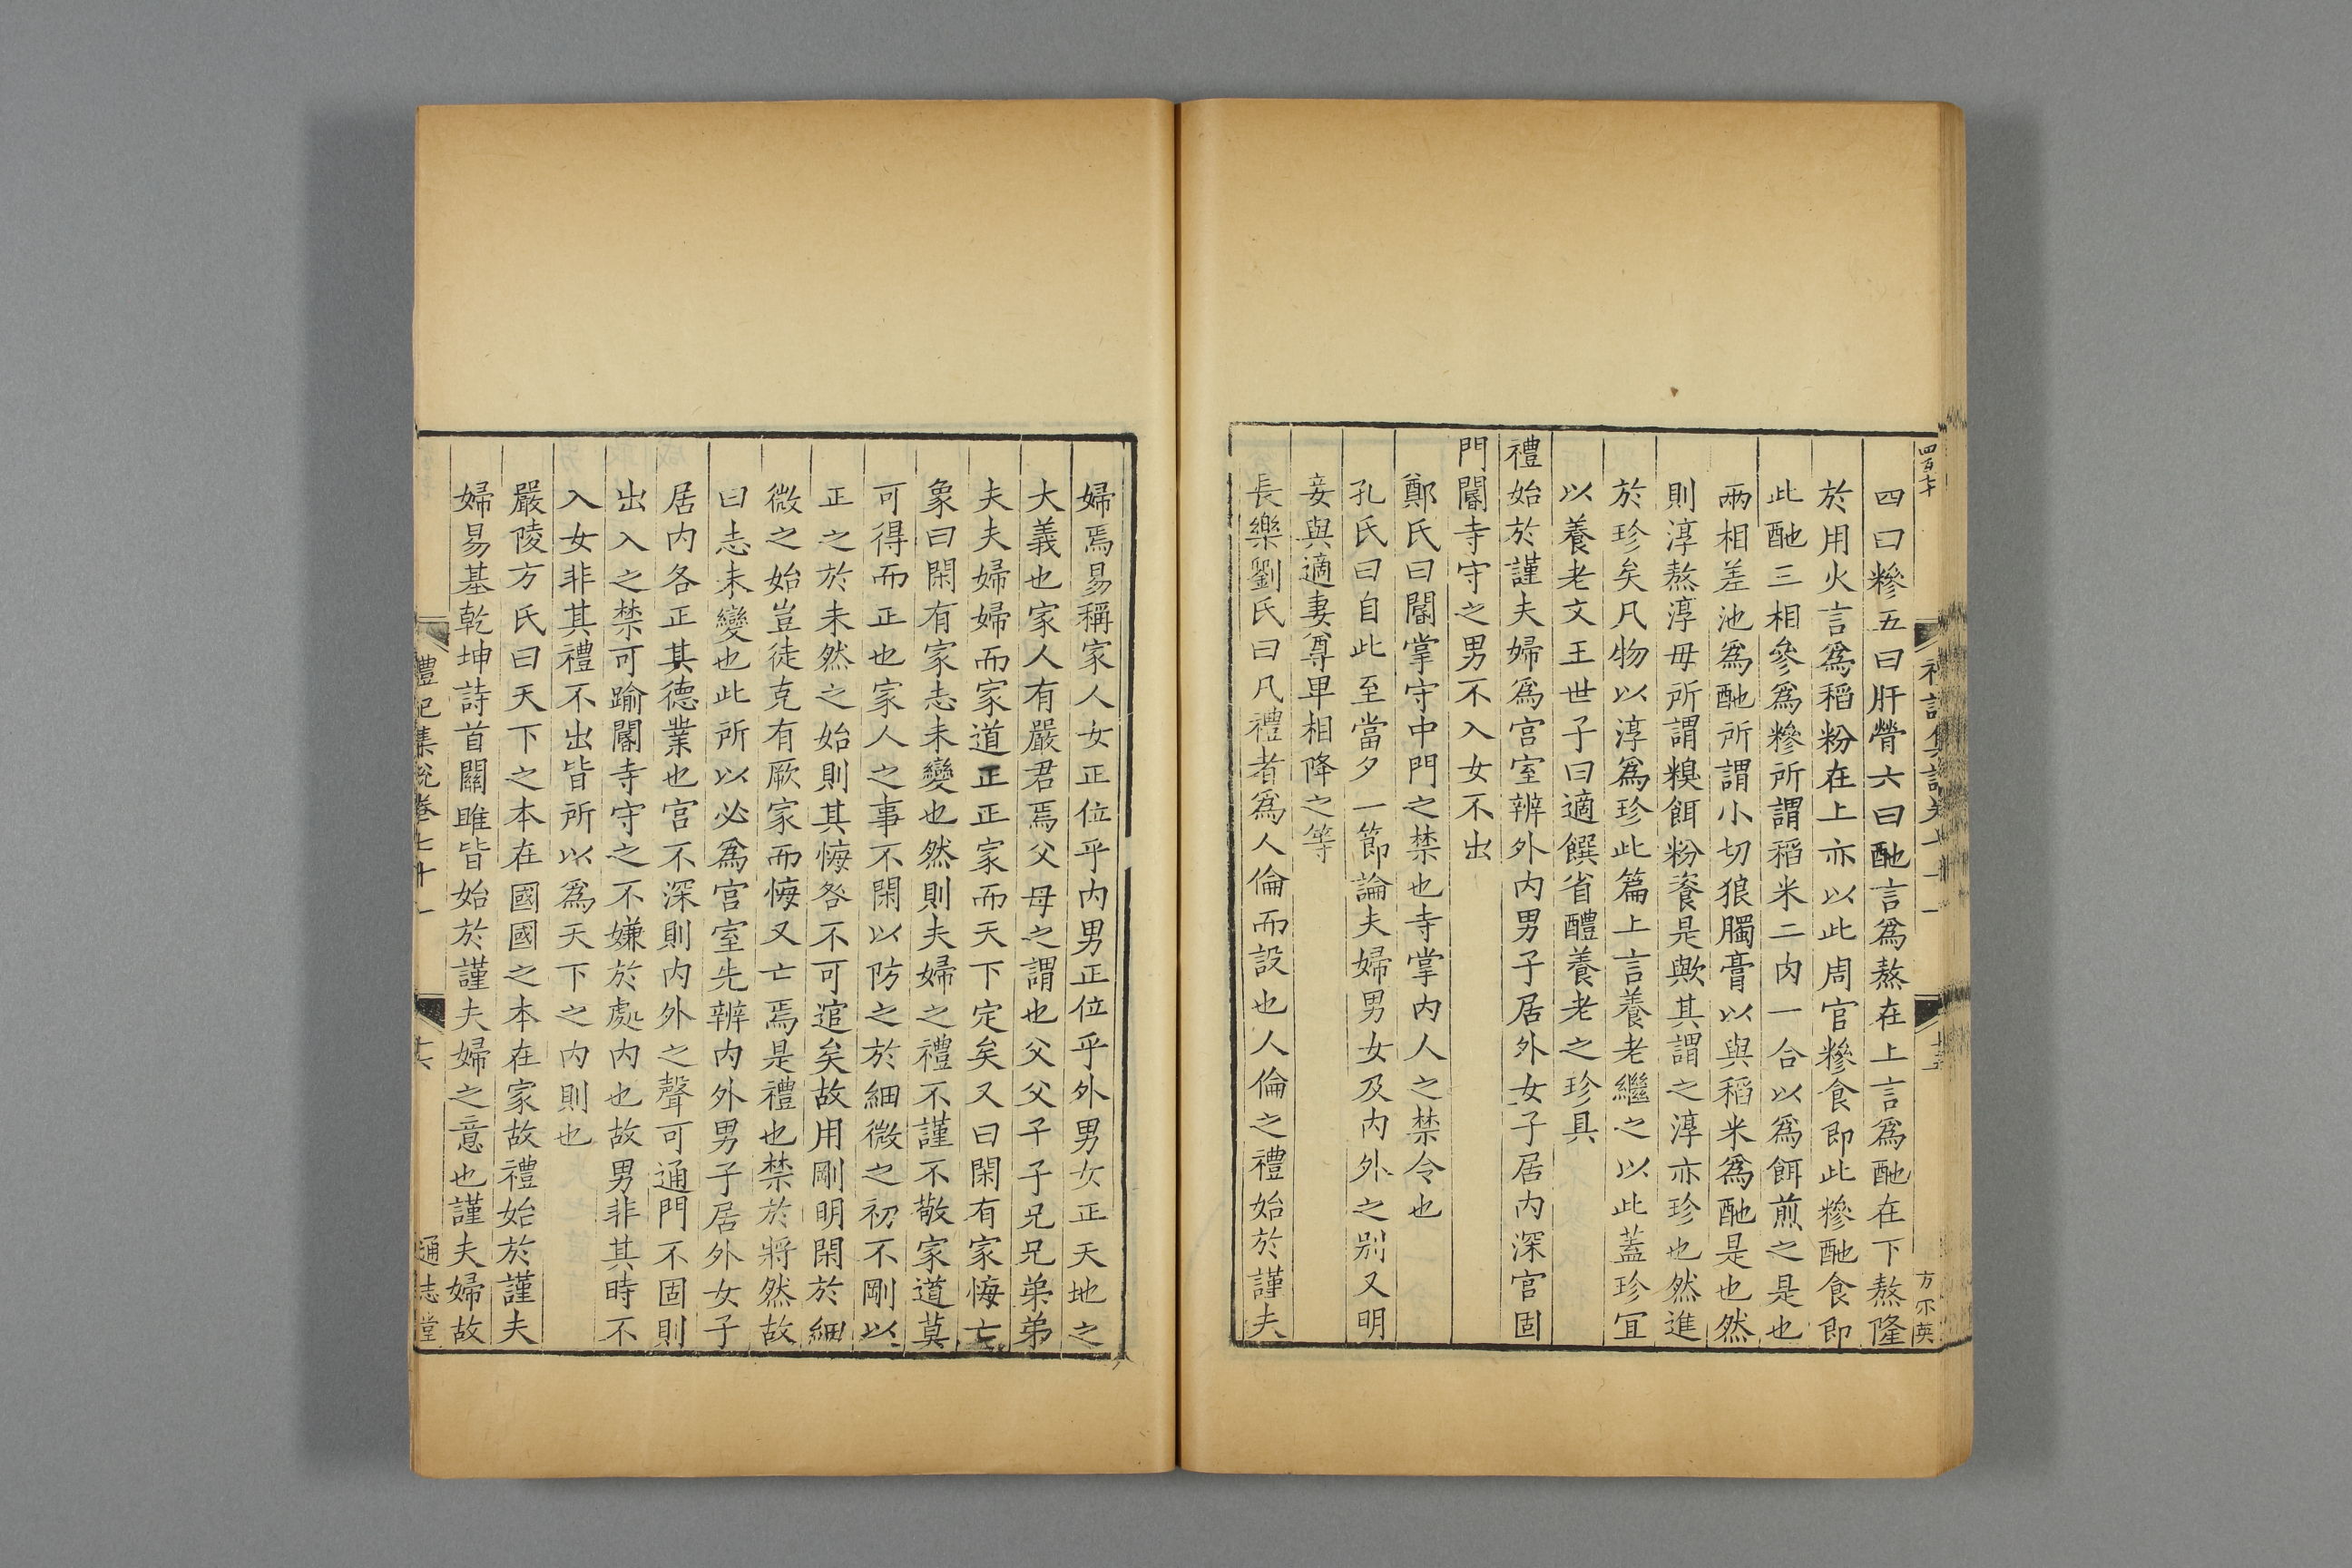 四曰糝五曰肝膋六曰酏言爲熬在上言爲酏在下熬隆
於用火言爲稻粉在上亦以此周官糝食即此糝酏食即
此酏三相參爲糝所謂稻米二肉一合以爲餌煎之是也
兩相差池爲酏所謂小切狼臅膏以與稻米爲酏是也然
則淳熬淳毋所謂糗餌粉餈是歟其謂之淳亦珍也然進
於珍矣凡物以淳爲珍此篇上言養老繼之以此蓋珍宜
以養老文王世子曰適饌省醴養老之珍具
禮始於謹夫婦爲宮室辨外内男子居外女子居内深宮固
門閽寺守之男不入女不出
鄭氏曰閽掌守中門之禁也寺掌内人之禁令也
孔氏曰自此至當夕一節論夫婦男女及内外之别又明
妾與適妻尊卑相降之等
長樂劉氏曰凡禮者爲人倫而設也人倫之禮始於謹夫
婦焉易稱家人女正位乎内男正位乎外男女正天地之
大義也家人有嚴君焉父母之謂也父父子子兄兄弟弟
夫夫婦婦而家道正正家而天下定矣又曰閑有家悔亡
象曰閑有家志未變也然則夫婦之禮不謹不敬家道莫
可得而正也家人之事不閑以防之於細微之初不剛以
正之於未然之始則其悔咎不可逭矣故用剛明閑於細
微之始豈徒克有厥家而悔又亡焉是禮也禁於將然故
曰志未變也此所以必爲宮室先辨内外男子居外女子
居内各正其德業也宮不深則内外之聲可通門不固則
出入之禁可踰閽寺守之不嫌於處内也故男非其時不
入女非其禮不出皆所以爲天下之内則也
嚴陵方氏曰天下之本在國國之本在家故禮始於謹夫
婦易基乾坤詩首關雎皆始於謹夫婦之意也謹夫婦故
禮記集說卷七十一
十六
通志堂